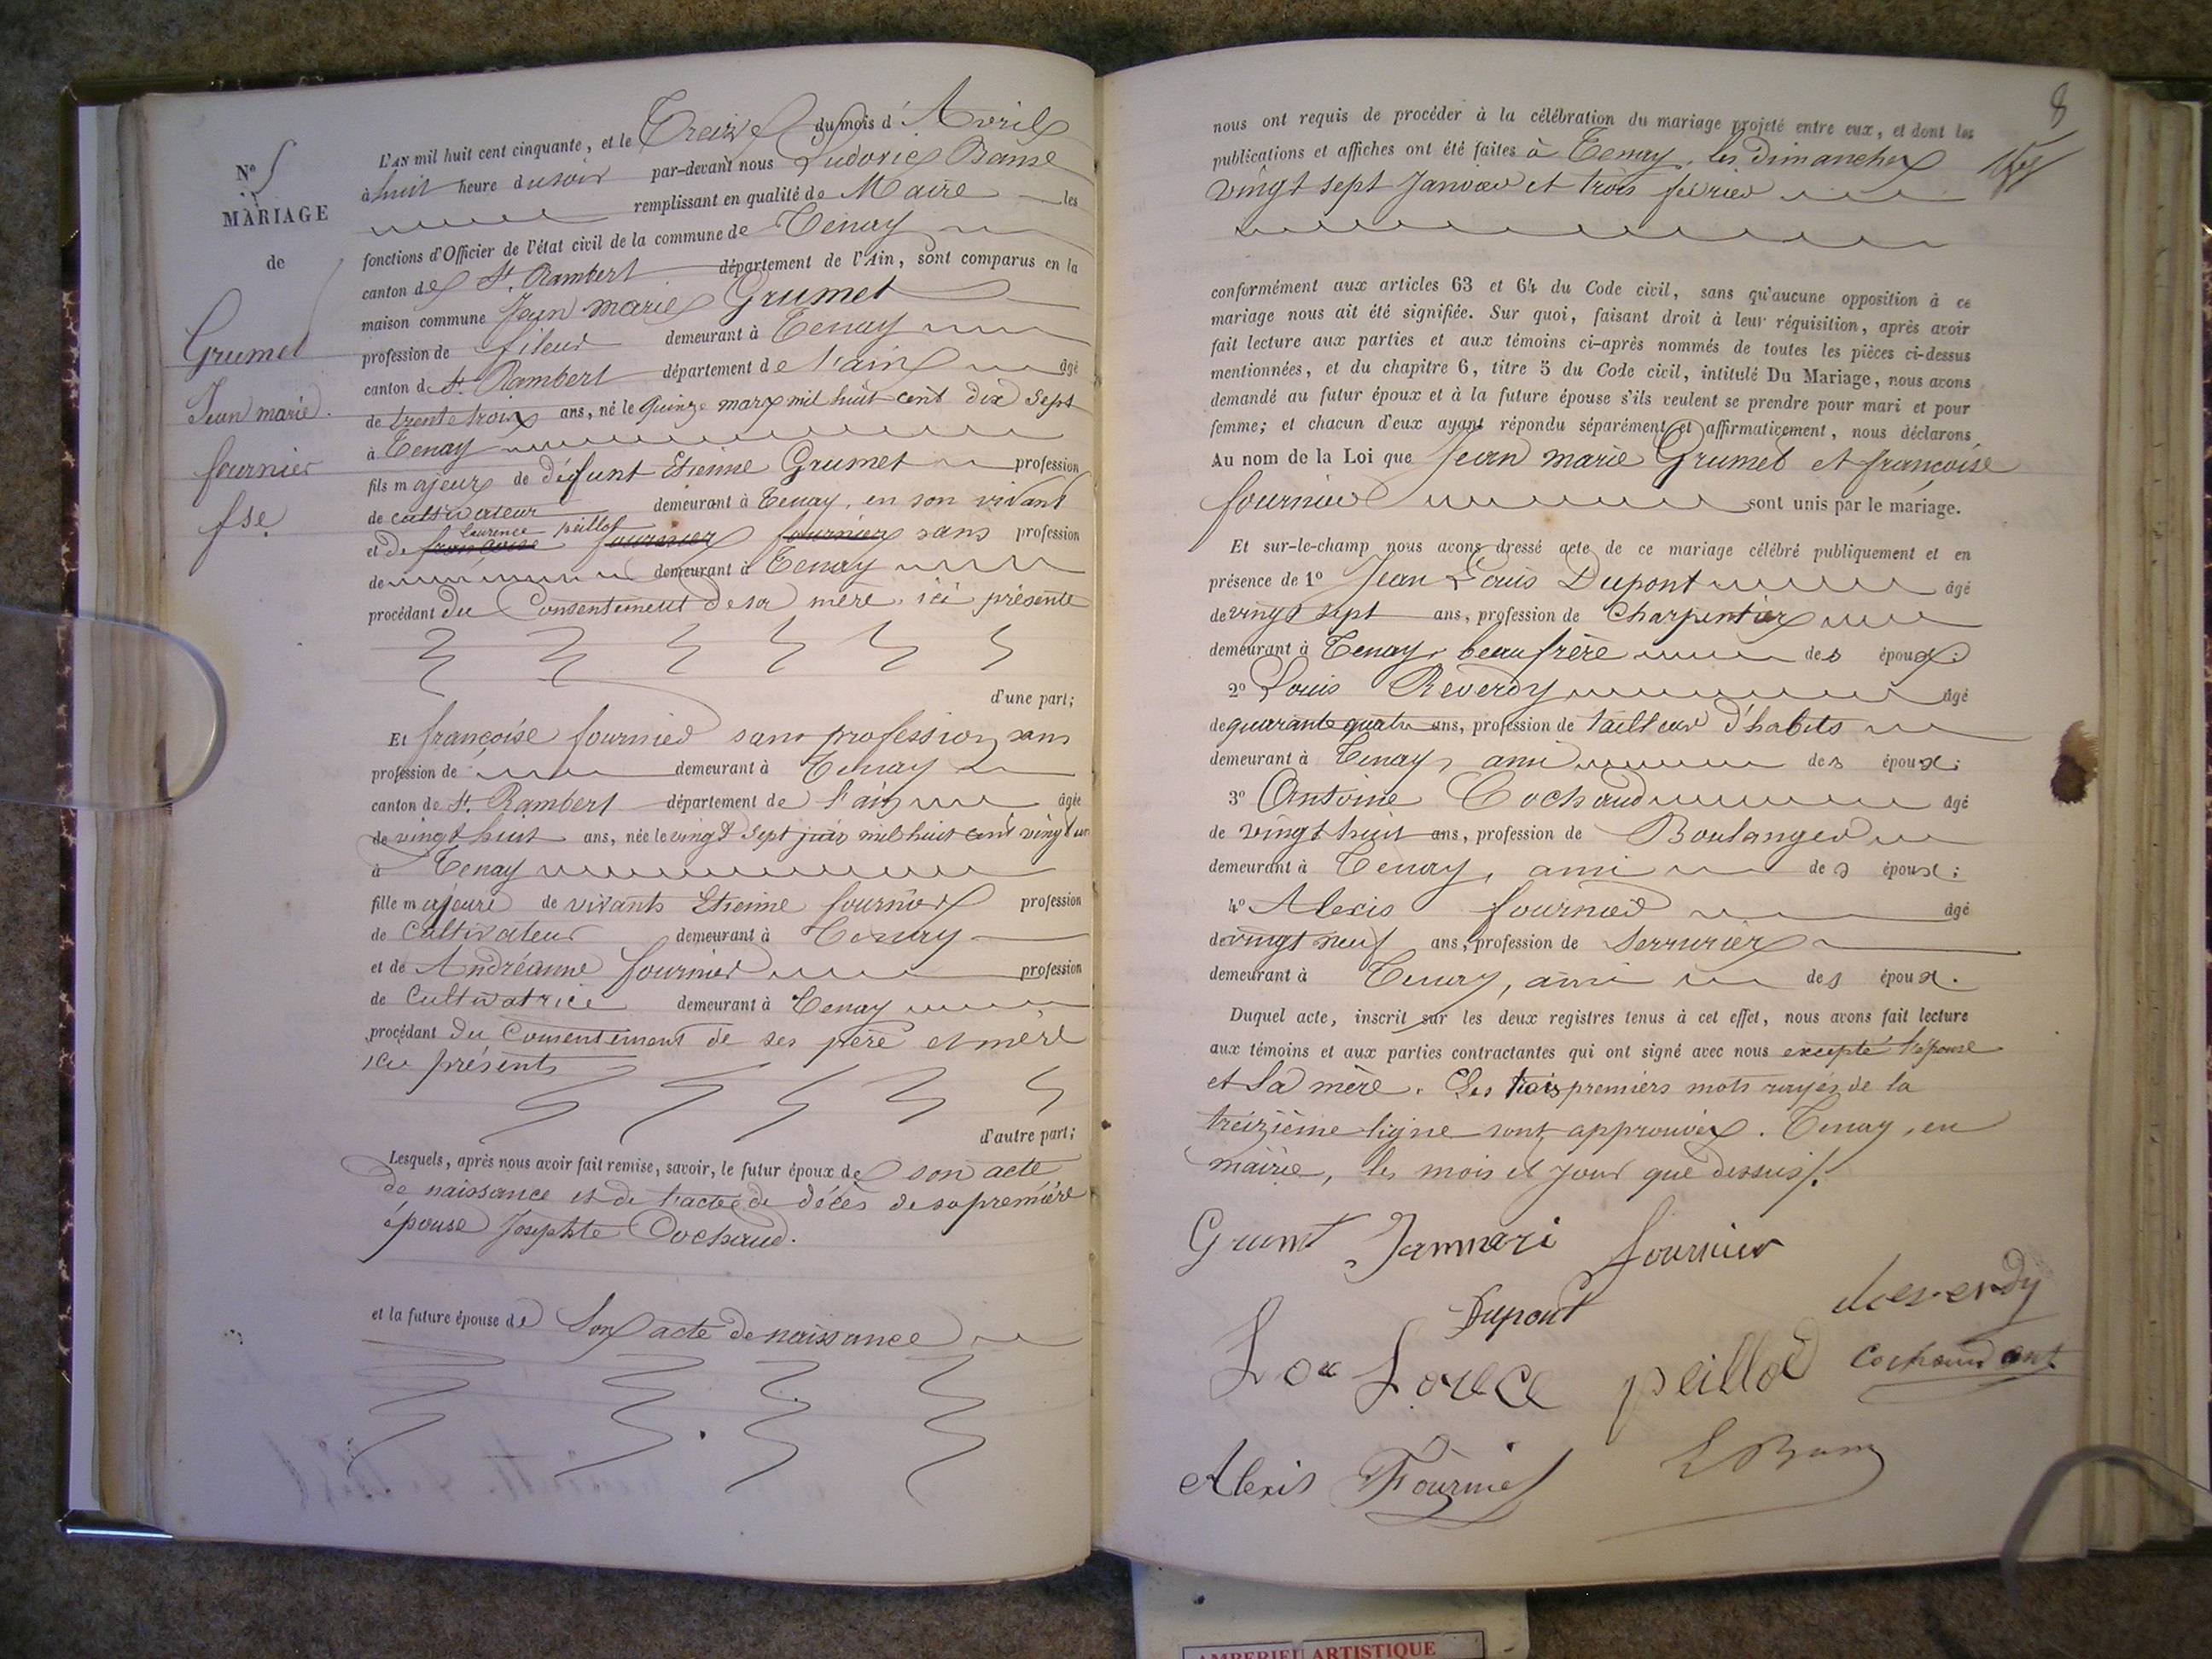 N° 5
MARIAGE
de
Grumet
Jean marie.
fournier
fse.
L'AN mil huit cent cinquante, et le Treize du mois d'Avril
à huit heure du soir par-devant nous Ludovic
remplissant en qualité de Maire les
fonctions d'Officier de l'état civil de la commune de Tenay
canton de St. Rambert département de l'Ain, sont comparus en la
maison commune Jean marie Grumet
profession de fileur demeurant à Tenay
canton de St. Rambert département de l'ain âgé
de trente trois ans, né le quinze mars mil huit cent dix sept
à Tenay
fils majeur de défunt Etienne Grumet profession
de cultivateur demeurant à Tenay, en son vivant
Laurence peillot
et de françoise fournier fournier sans profession
de demeurant à Tenay
procédant du Consentement de sa mère ici présente
d'une part;
Et françoise fournier sans profession sans
profession de demeurant à Tenay
canton de St. Rambert département de l'ain âgée
de vingt huit ans, née le vingt sept juin mil huit cent vingt un
à Tenay
fille majeure de vivants Etienne fournier profession
de Cultivateur demeurant à Tenay
et de Andréanne fournier profession
de Cultivatrice demeurant à Tenay
procédant du Consentement de ses père et mère
ici présents
d'autre part;
Lesquels, après nous avoir fait remise, savoir, le futur époux de son acte
de naissance et de l'acte de décès de sa première
épouse Josephte Cochaud.
et la future épouse de Son acte de naissance
8
nous ont requis de procéder à la célébration du mariage projeté entre eux, et dont les
publications et affiches ont été faites à Tenay, les Dimanches
vingt sept Janvier et trois février
conformément aux articles 63 et 64 du Code civil, sans qu'aucune opposition à ce
mariage nous ait été signifiée. Sur quoi, faisant droit à leur réquisition, après avoir
fait lecture aux parties et aux témoins ci-après nommés de toutes les pièces ci-dessus
mentionnées, et du chapitre 6, titre 5 du Code civil, intitulé Du Mariage, nous avons
demandé au futur époux et à la future épouse s'ils veulent se prendre pour mari et pour
femme; et chacun d'eux ayant répondu séparément et affirmativement, nous déclarons,
Au nom de la Loi que Jean marie Grumet et françoise
fournier sont unis par le mariage.
Et sur-le-champ nous avons dressé acte de ce mariage célébré publiquement et en
présence de 1° Jean Louis Dupont âgé
de vingt sept ans, profession de Charpentier
demeurant à Tenay, beau frère des époux;
2° Louis Reverdy âgé
de quarante quatre ans, profession de tailleur d'habits
demeurant à Tenay, ami des époux;
3° Antoine Cochaud âgé
de vingt huit ans, profession de Boulanger
demeurant à Tenay, ami des époux;
4° Alexis fournier âgé
de vingt neuf ans, profession de Serrurier
demeurant à Tenay, ami des époux.
Duquel acte, inscrit sur les deux registres tenus à cet effet, nous avons fait lecture
aux témoins et aux parties contractantes qui ont signé avec nous excepté l'épouse
et Sa mère. Les trois premiers mots rayés de la
treizième ligne sont approuvés. Tenay, en
mairie, les mois et jour que dessus.
Grumt Janmari fournier
Dupont Reverdy
Lou Lorece peillod Cochaud ant.
Alexis Fournier
AMBERIEU ARTISTIQUE